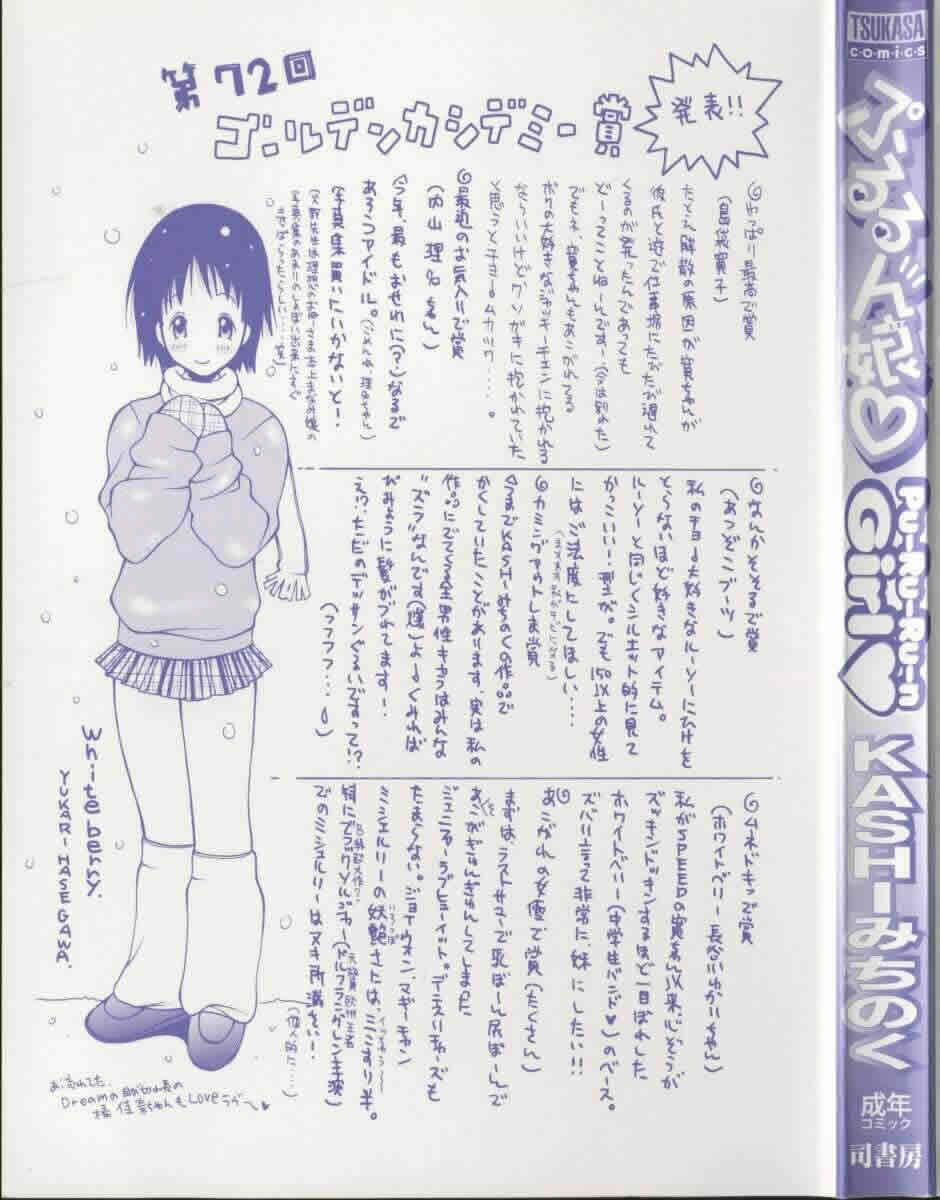 第72回
ゴールデンカシデミー賞
発表!!
やっぱり最高で賞
(島袋寛子)
たとえ解散の原因が寛ちゃんが
彼氏と遊んで仕事場にたびたび遅れて
くるのが発たんであっても
どーってことねーんです…(今は別れた)
でもその寛ちゃんもあこがれてる
ボクの大好きなジャッキーチェンに抱かれる
ならいいけどクソガキに抱かれていた
と思うとチョームカック....。
最近のお気入りで賞
(内山理名ちゃん)
今年、最もおせわに(?)なるで
あろうアイドル。(ごめんね、理名ちゃん)
写真集買いにいかないと!
なんかそそるで賞
(あつぞこブーツ)
私のチョー大好きなルーソーにひけを
とらないほど好きなアイテム。
ルーソーと同じくシルエット的に見て
かっこいい!型が。でも150以上の女性
にはご法度にしてほしい....
カミングアウトしま賞
今までKASHIみちのくの作品で
かくしていたことがあります。実は私の
作品にでてくる全男性キャラはみんな
"ズラ"なんです(爆)よーくみれば
びみょうに髪がづれてます!
え!?ただのデッサンぐるいですって!?
(うフフフ...)
ムネドキッで賞
(ホワイトベリー 長谷川ゆかりちゃん)
私がSPEEDの寛ちゃん以来、心ぞうが
ズッキンドッキンするほど一目ぼれした
ホワイトベリー(中学生バンド♥)のベース。
ズバリ言って非常に、妹にしたい!!
あこがれの女優で賞(たくさん)
まずは、ラストサマーで乳ぼーん尻ぼーんで
あそこがぎゅんぎゅんしてしまった
ジェニファーラブヒューイット。デニスリチャーズも
たまらない。ジョイウォン、マギーチャン
ミシェルリーの妖艶さたは、ミミこすり半。
特にブラックソルジャー(ドルフラングレン主演)
でのミシェルリーはヌキ所満さい!
(個人的に....)
Whiteberry.
YUKARI HASEGAWA.
お忘れてた
Dreamの
橘佳奈ちゃんもLoveラブ〜♥
TSUKASA
comics
ぷるるん娘♡
PU-RU-RU-n
Girl♡
KASHIみちのく
成年
コミック
司書房